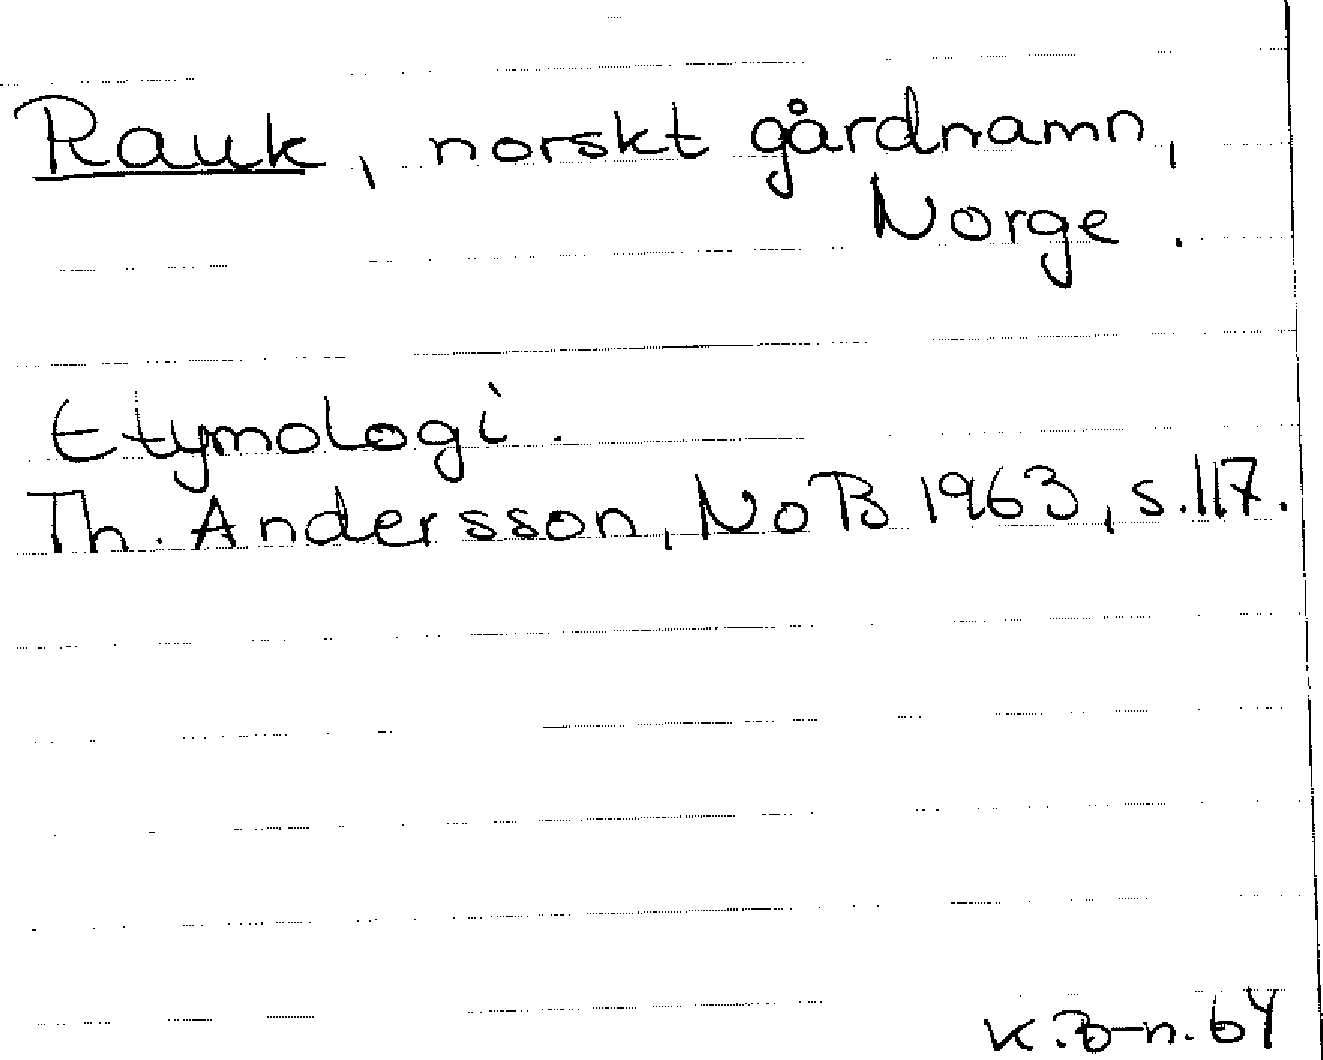 Rauk, norskt gårdnamn,
Norge.
Etymologi.
Th. Andersson, NoB 1963, s. 117.
K. B-n. 64